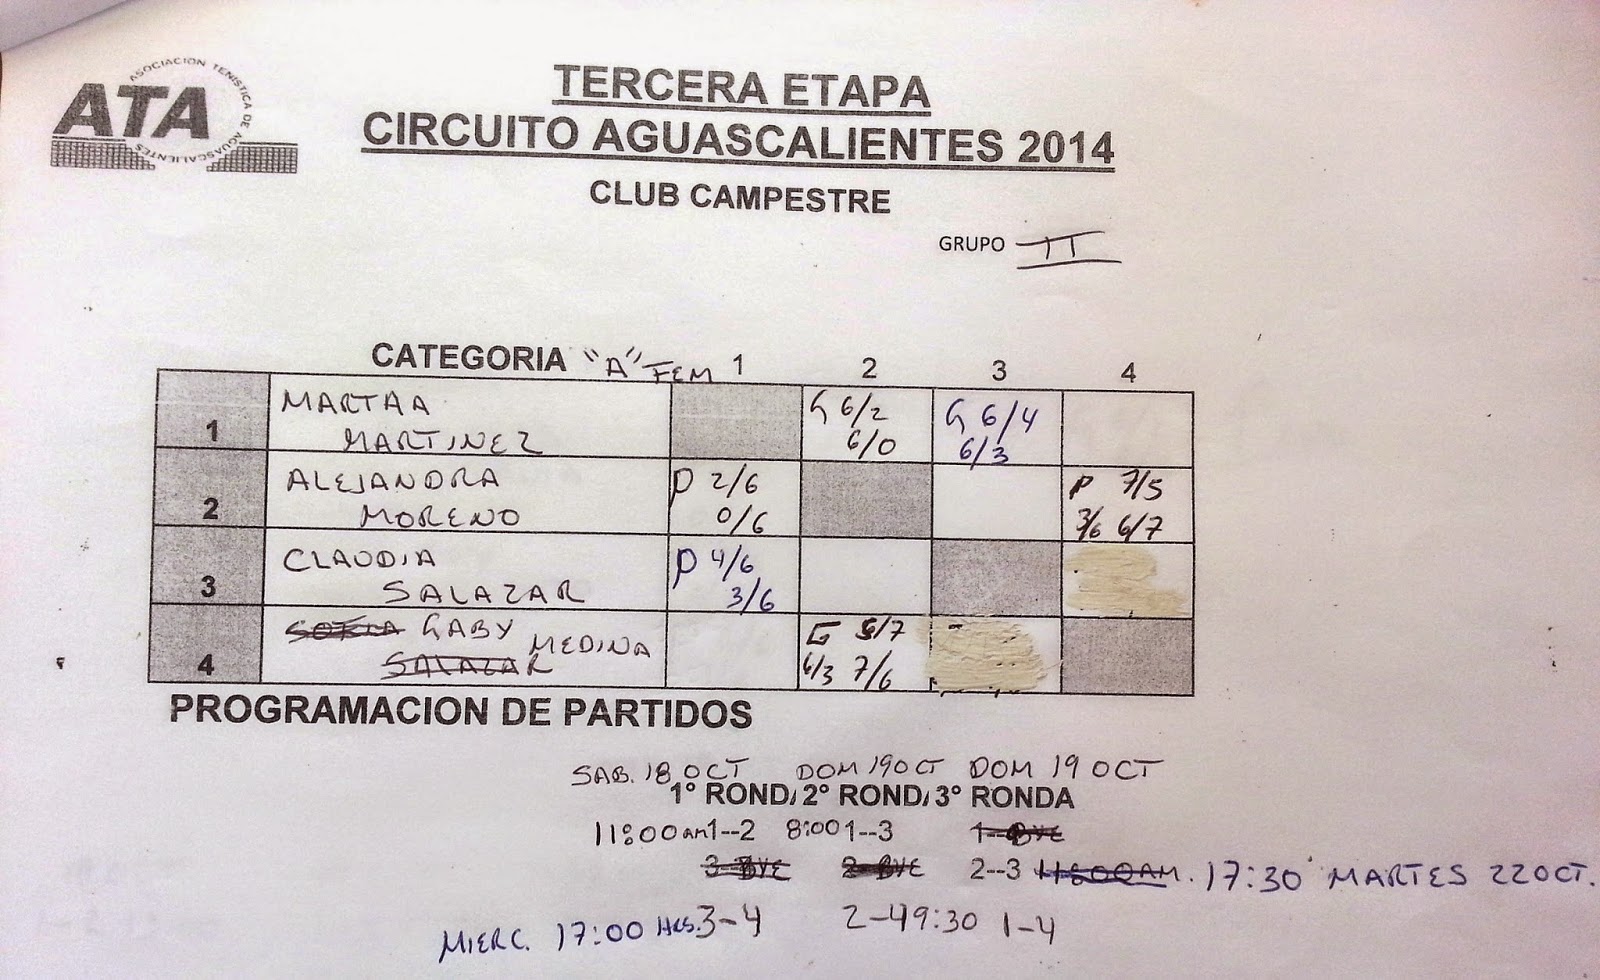 ASOCIACION TENISTICA DE AGUASCALIENTES
ATA
TERCERA ETAPA
CIRCUITO AGUASCALIENTES 2014
CLUB CAMPESTRE
GRUPO II
CATEGORIA "A" FEM 1 2 3 4
1 MARTAA MARTINEZ G 6/2 6/0 G 6/4 6/3
2 ALEJANDRA MORENO P 2/6 0/6 P 7/5 3/6 6/7
3 CLAUDIA SALAZAR P 4/6 3/6
4 SOFIA SALAZAR GABY MEDINA G 5/7 6/3 7/6
PROGRAMACION DE PARTIDOS
SAB. 18 OCT DOM 19 OCT DOM 19 OCT
1° ROND 2° ROND 3° RONDA
11:00am 1--2 8:00 1--3 1--BYE
3-BYE 2-BYE 2--3 11:00AM. 17:30 MARTES 22 OCT.
MIERC. 17:00 HRS. 3-4 2-4 9:30 1-4